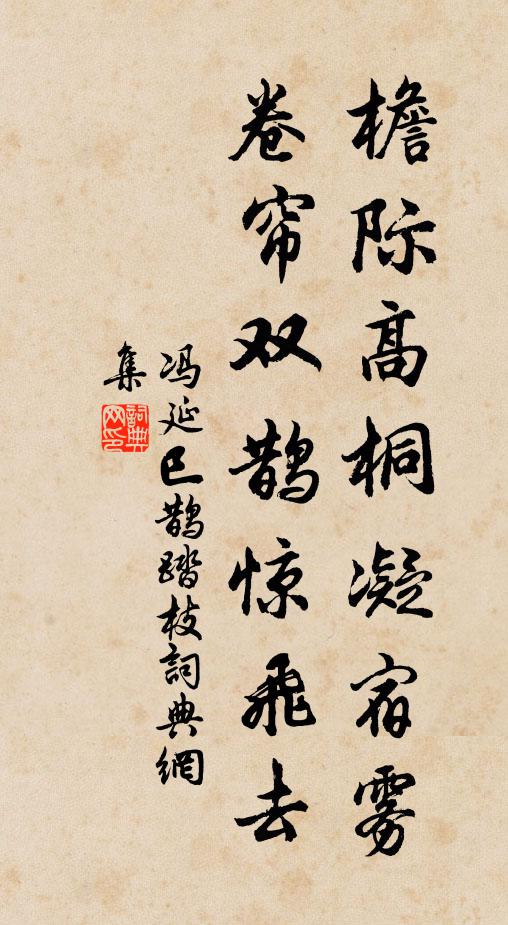 檐际高桐凝宿雾
卷帘双鹊惊飞去
冯延巳鹊踏枝詞典網
集
詞典网印